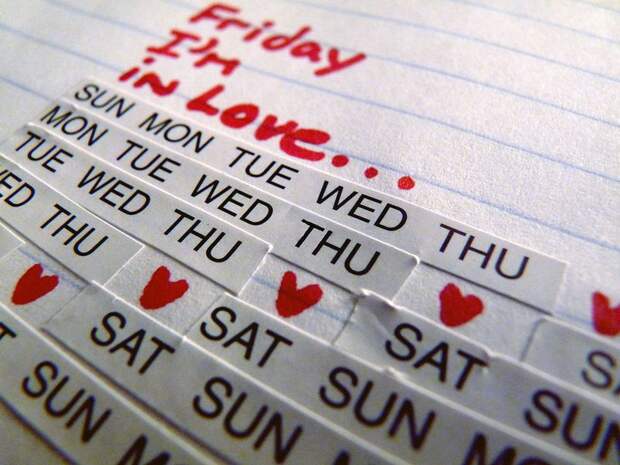 Friday
I'm
in Love...
SUN MON TUE WED THU
MON TUE WED THU
TUE WED THU
ED THU
S
SAT SUN
SAT SUN
SAT SUN
SUN